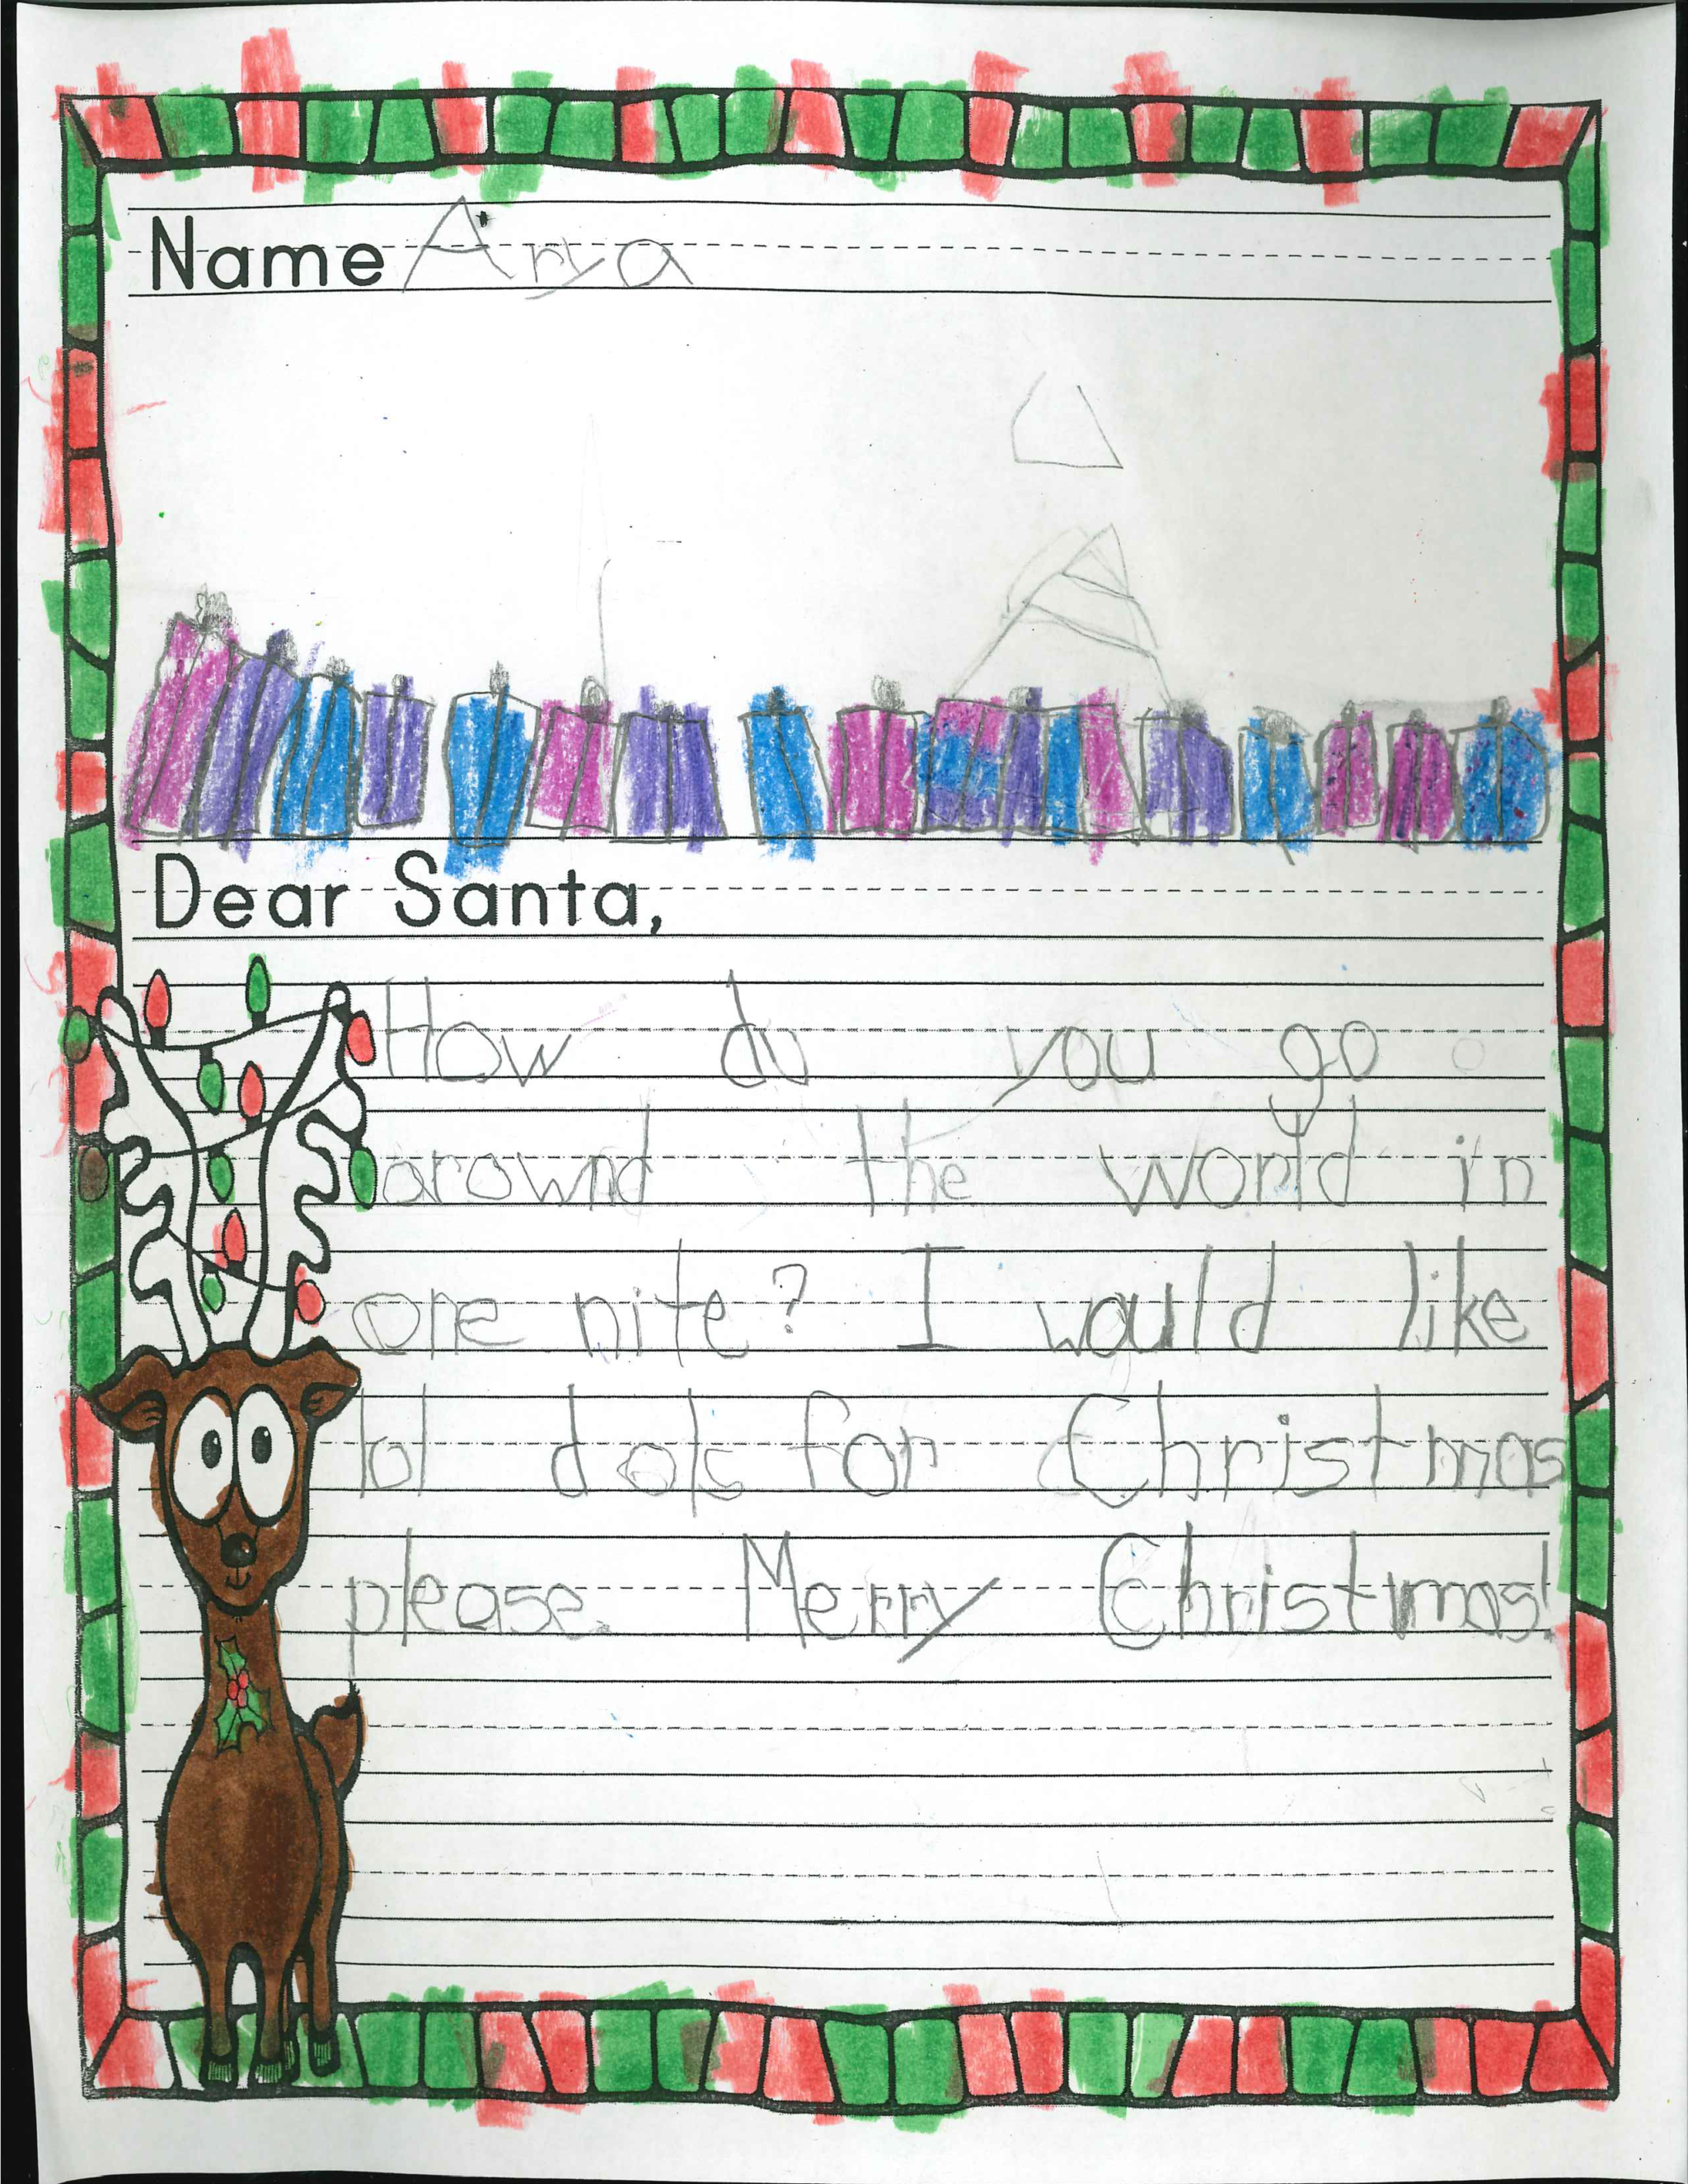 Name Arya
Dear Santa,
How do you go
arownd the world in
one nite? I would like
lol dols for Christmas
please. Merry Christmas!